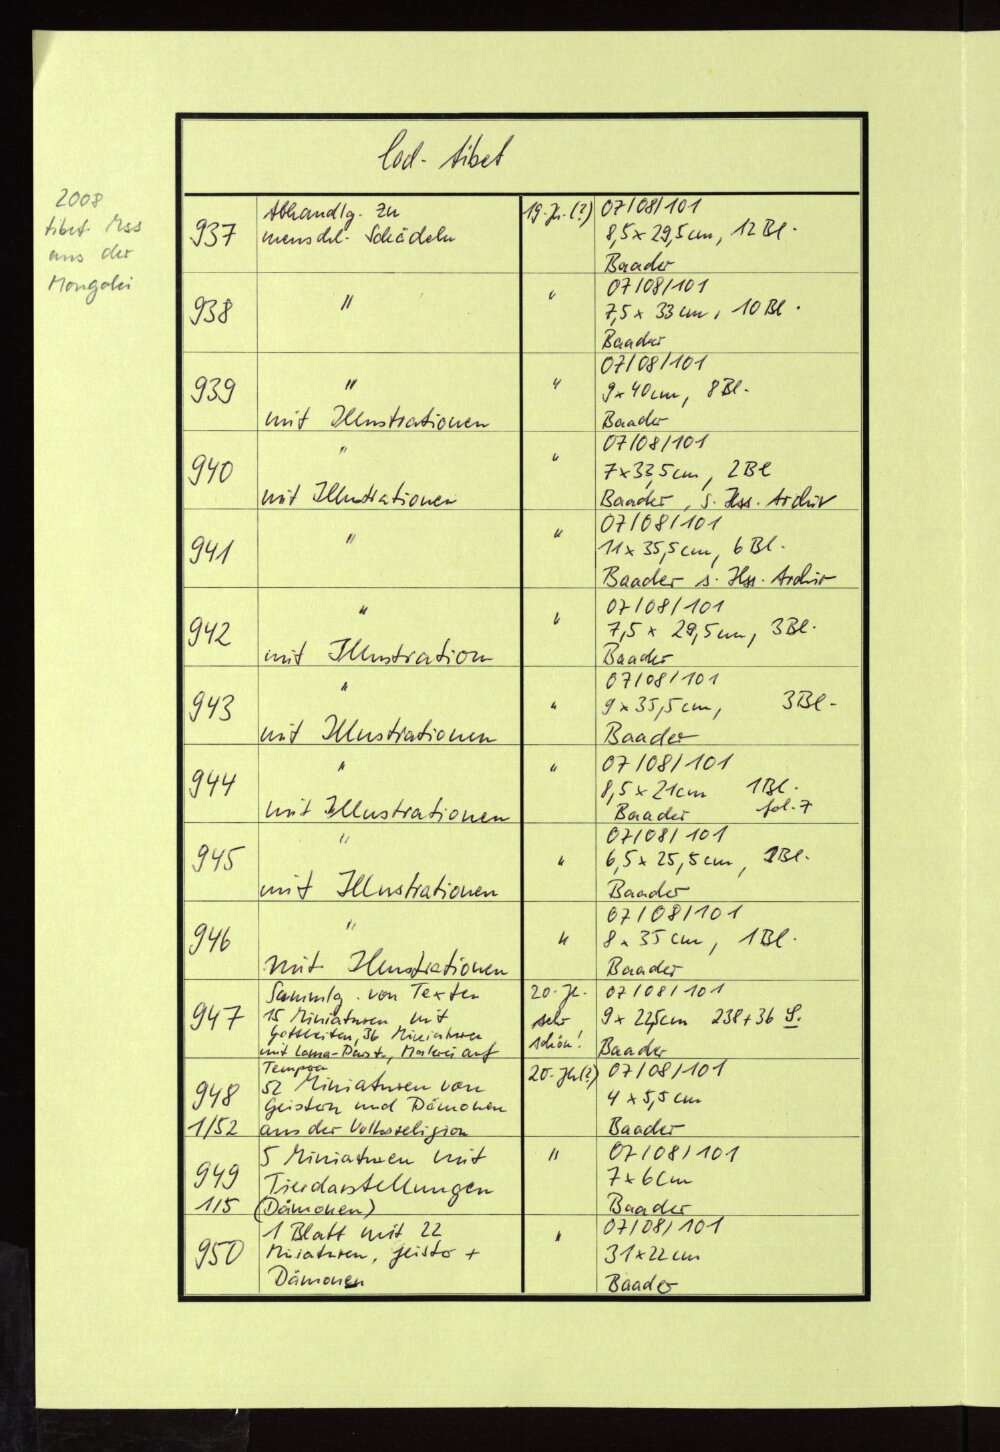 Cod. tibet
2008
tibet. Mss
aus der
Mongolei
937
Abhandlg. zu
menschl. Schädeln
19. Jh. (?)
07/08/101
8,5 x 29,5 cm, 12 Bl.
Baader
938
"
"
07/08/101
7,5 x 33 cm, 10 Bl.
Baader
939
"
mit Illustrationen
"
07/08/101
9 x 40 cm, 8 Bl.
Baader
940
"
mit Illustrationen
"
07/08/101
7 x 33,5 cm, 2 Bl
Baader, s. Hss. Archiv
941
"
"
07/08/101
11 x 35,5 cm, 6 Bl.
Baader s. Hss. Archiv
942
"
mit Illustration
"
07/08/101
7,5 x 29,5 cm, 3 Bl.
Baader
943
"
mit Illustrationen
"
07/08/101
9 x 35,5 cm, 3 Bl.
Baader
944
"
mit Illustrationen
"
07/08/101
8,5 x 21 cm 1 Bl.
Baader fol. 7
945
"
mit Illustrationen
"
07/08/101
6,5 x 25,5 cm, Bl.
Baader
946
"
mit Illustrationen
"
07/08/101
8 x 35 cm, 1 Bl.
Baader
947
Sammlg. von Texten
15 Miniaturen mit
Gottheiten, 36 Miniaturen
mit Lama-Darst., Malerei auf
Tempera
20. Jh.
sehr
schön!
07/08/101
9 x 22,5 cm 238 + 36 S.
Baader
948
1/52
52 Miniaturen von
Geistern und Dämonen
aus der Volksreligion
20. Jh (?)
07/08/101
4 x 5,5 cm
Baader
949
1/5
5 Miniaturen mit
Tierdarstellungen
(Dämonen)
"
07/08/101
7 x 6 cm
Baader
950
1 Blatt mit 22
Miniaturen, Geister +
Dämonen
"
07/08/101
31 x 22 cm
Baader